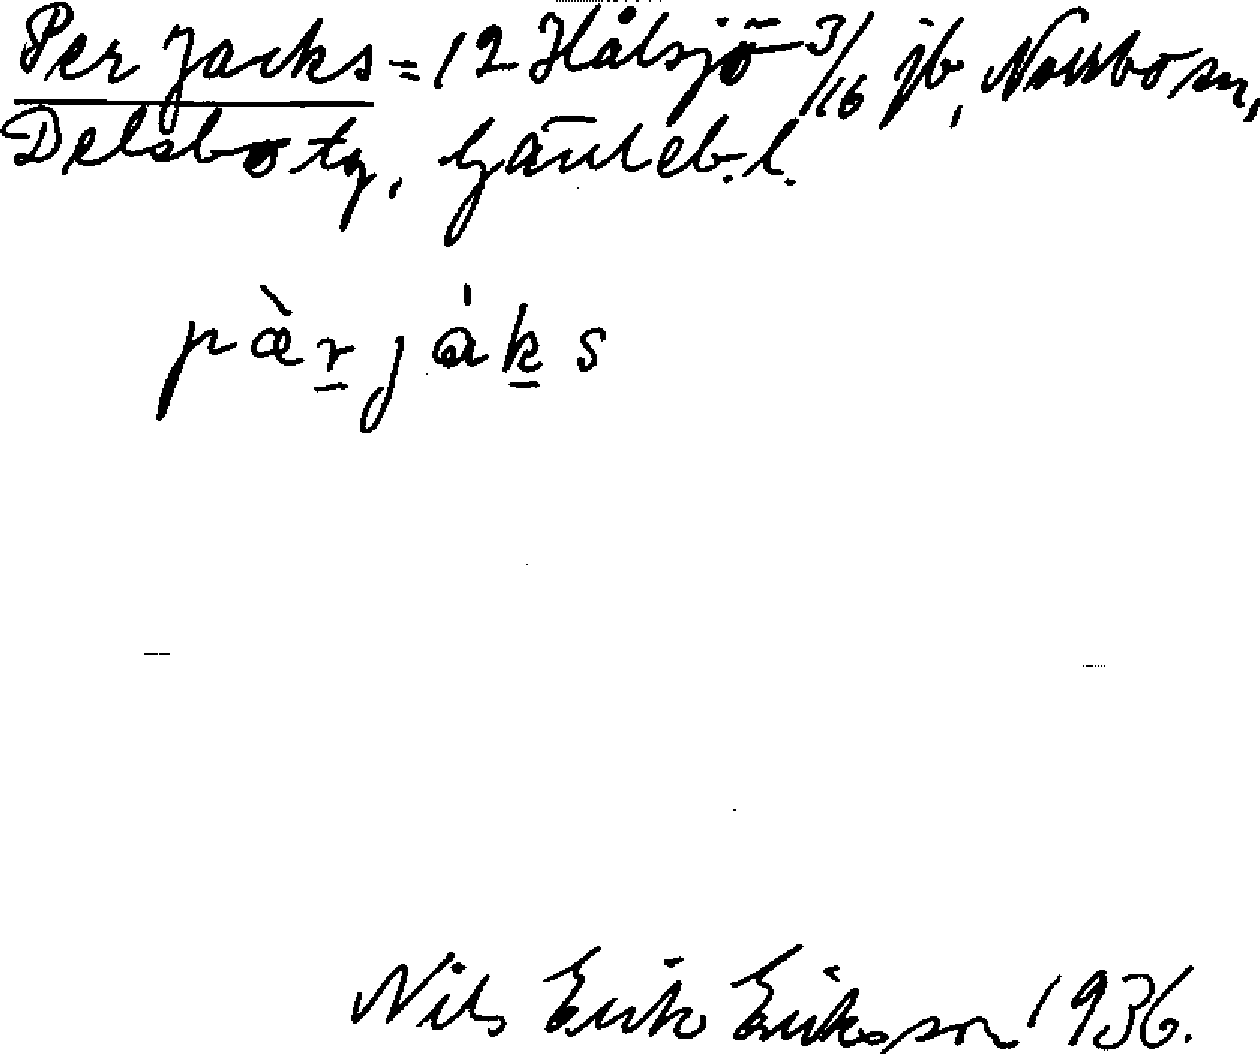 Per Jacks = 12 Hålsjö 3/16 jb, Norrbo sn,
Delsbo tg, Gävleb. l.
pæ̀r já̱ks
Nils Erik Eriksson 1936.